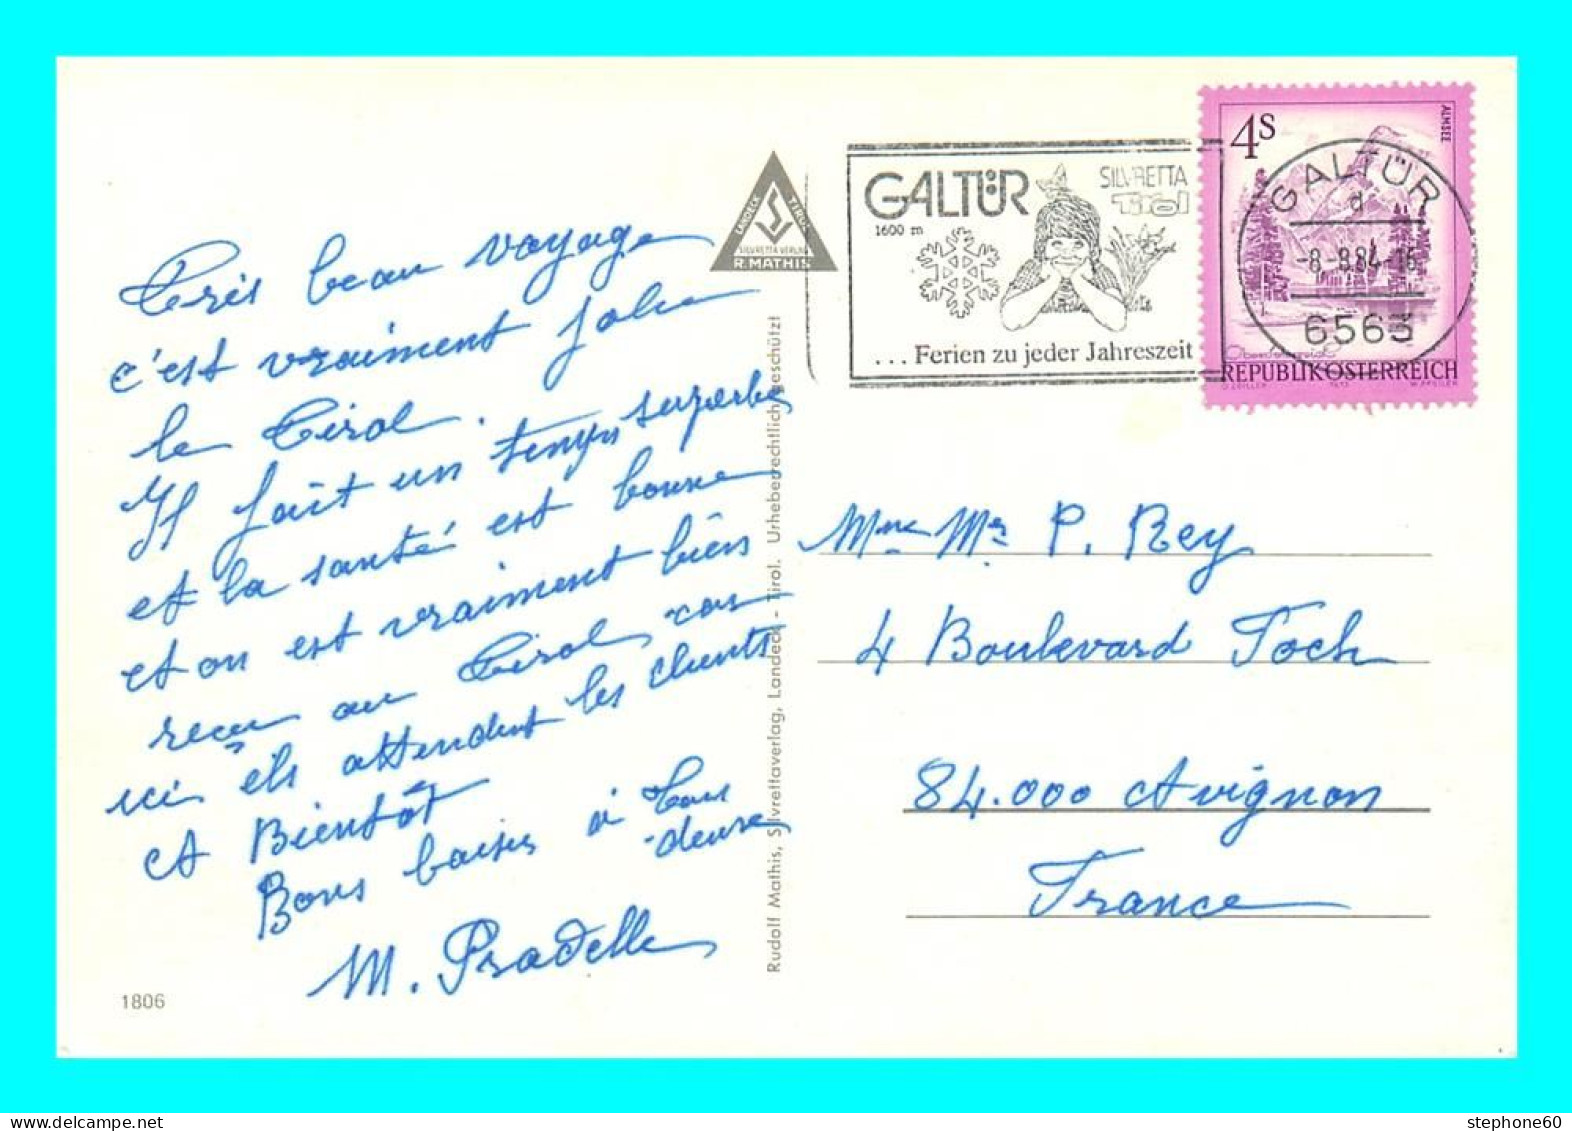 Très beau voyage
c'est vraiment jolie
le Tirol.
Il fait un temps superbe
et la santé est bonne
et on est vraiment bien
reçu au Tirol car
ici ils attendent les clients
et Bientôt
Bons baisers à tous
deux
M. Pradelle
1806
LANDECK TIROL
SILVRETTA VERLAG
R. MATHIS
Rudolf Mathis, Silvrettaverlag, Landeck - Tirol. Urheberrechtlich geschützt
GALTÜR
1600 m
SILVRETTA
Tirol
... Ferien zu jeder Jahreszeit
4S
ALMSEE
GALTÜR
d
-8.-9.84-16
6563
REPUBLIK ÖSTERREICH
Mme Mr P. Rey
4 Boulevard Foch
84.000 Avignon
France
stephone60